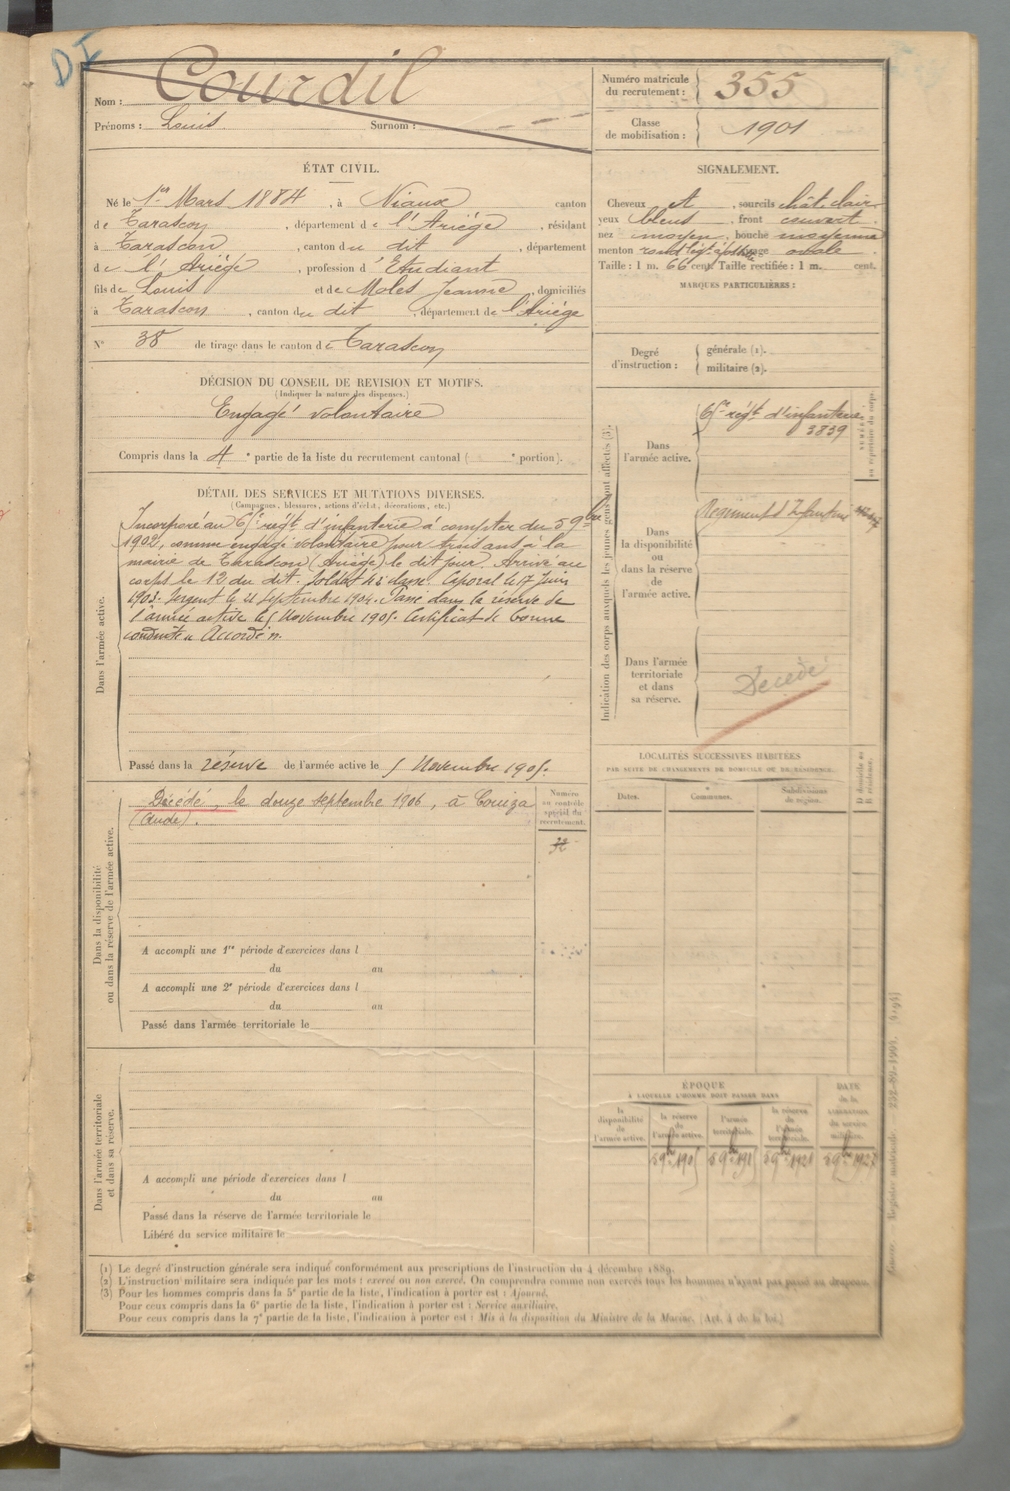 D I
Nom : Courdil
Prénoms : Louis Surnom :
Numéro matricule du recrutement : 355
Classe de mobilisation : 1901
ÉTAT CIVIL.
Né le 1er Mars 1884, à Niaux canton
de Tarascon, département de l'Ariège, résidant
à Tarascon, canton du dit, département
de l'Ariège, profession d'Etudiant
fils de Louis et de Moles Jeanne, domiciliés
à Tarascon, canton du dit, département de l'Ariège
N° 38 de tirage dans le canton de Tarascon
SIGNALEMENT.
Cheveux et, sourcils chât. clair
yeux bleus, front couvert.
nez moyen, bouche moyenne
menton rond visage ovale.
Taille : 1 m. 66 cent. Taille rectifiée : 1 m. cent.
MARQUES PARTICULIÈRES :
Degré d'instruction :
générale (1).
militaire (2).
DÉCISION DU CONSEIL DE REVISION ET MOTIFS.
(Indiquer la nature des dispenses.)
Engagé volontaire
Compris dans la 4e partie de la liste du recrutement cantonal ( e portion).
DÉTAIL DES SERVICES ET MUTATIONS DIVERSES.
(Campagnes, blessures, actions d'éclat, décorations, etc.)
Dans l'armée active.
Incorporé au régt d'infanterie à compter du 5 9bre
1902, comme engagé volontaire pour trois ans à la
mairie de Tarascon (Ariège) le dit jour. Arrivé au
corps le 12 du dit. Soldat de 2e classe. Caporal le 17 Juin
1903. Sergent le 21 Septembre 1904. Passé dans la réserve de
l'armée active le 5 Novembre 1905. Certificat de bonne
conduite "Accordé".
Passé dans la réserve de l'armée active le 5 Novembre 1905.
Indication des corps auxquels les jeunes gens sont affectés (3).
Dans l'armée active.
régt d'infanterie
3839
NUMÉRO au répertoire du corps.
Dans la disponibilité ou dans la réserve de l'armée active.
Régiment d'Infanterie
Dans l'armée territoriale et dans sa réserve.
Décédé
Dans la disponibilité ou dans la réserve de l'armée active.
Décédé, le douze septembre 1906, à Couiza
(Aude).
Numéro au contrôle spécial du recrutement.
A accompli une 1re période d'exercices dans l
du au
A accompli une 2e période d'exercices dans l
du au
Passé dans l'armée territoriale le
LOCALITÉS SUCCESSIVES HABITÉES
PAR SUITE DE CHANGEMENTS DE DOMICILE OU DE RÉSIDENCE.
Dates. Communes. Subdivisions de région. D domicile ou R résidence.
Dans l'armée territoriale et dans sa réserve.
A accompli une période d'exercices dans l
du au
Passé dans la réserve de l'armée territoriale le
Libéré du service militaire le
ÉPOQUE
À LAQUELLE L'HOMME DOIT PASSER DANS
la disponibilité de l'armée active.
la réserve de l'armée active.
l'armée territoriale.
la réserve de l'armée territoriale.
DATE de la LIBÉRATION du service militaire.
5 9bre 1905 5 9bre 1915 5 9bre 1921 5 9bre 1927
(1) Le degré d'instruction générale sera indiqué conformément aux prescriptions de l'instruction du 4 décembre 1889.
(2) L'instruction militaire sera indiquée par les mots : exercé ou non exercé. On comprendra comme non exercés tous les hommes n'ayant pas passé au drapeau.
(3) Pour les hommes compris dans la 5e partie de la liste, l'indication à porter est : Ajourné.
Pour ceux compris dans la 6e partie de la liste, l'indication à porter est : Service auxiliaire.
Pour ceux compris dans la 7e partie de la liste, l'indication à porter est : Mis à la disposition du Ministre de la Marine. (Art. 4 de la loi.)